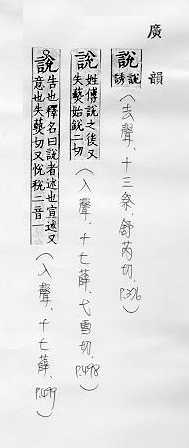 廣韻
說 說誘（去聲，十三祭，舒芮切，P.376）
說 姓傅說之後又
失爇始銳二切（入聲，十七薛，弋雪切，P.498）
說 告也釋名曰說者述也宣述人
意也失爇切又悅稅二音一（入聲，十七薛，P.499）